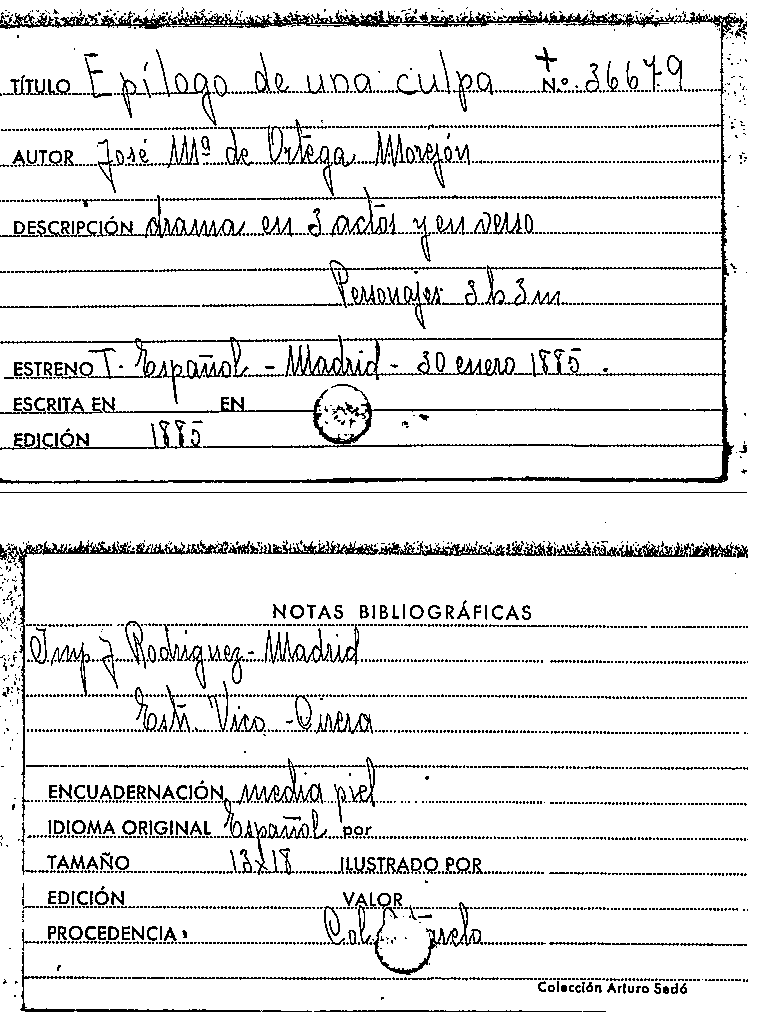 TÍTULO Epílogo de una culpa + Nº. 36679
AUTOR José Mª de Ortega Morejón
DESCRIPCIÓN drama en 3 actos y en verso
Personajes 3 h 3 m
ESTRENO T. Español - Madrid - 30 enero 1885.
ESCRITA EN EN
EDICIÓN 1885
NOTAS BIBLIOGRÁFICAS
Imp J Rodriguez - Madrid
Estr. Vico -
ENCUADERNACIÓN media piel
IDIOMA ORIGINAL Español por
TAMAÑO 13x18 ILUSTRADO POR
EDICIÓN VALOR
PROCEDENCIA Col.
Colección Arturo Sedó